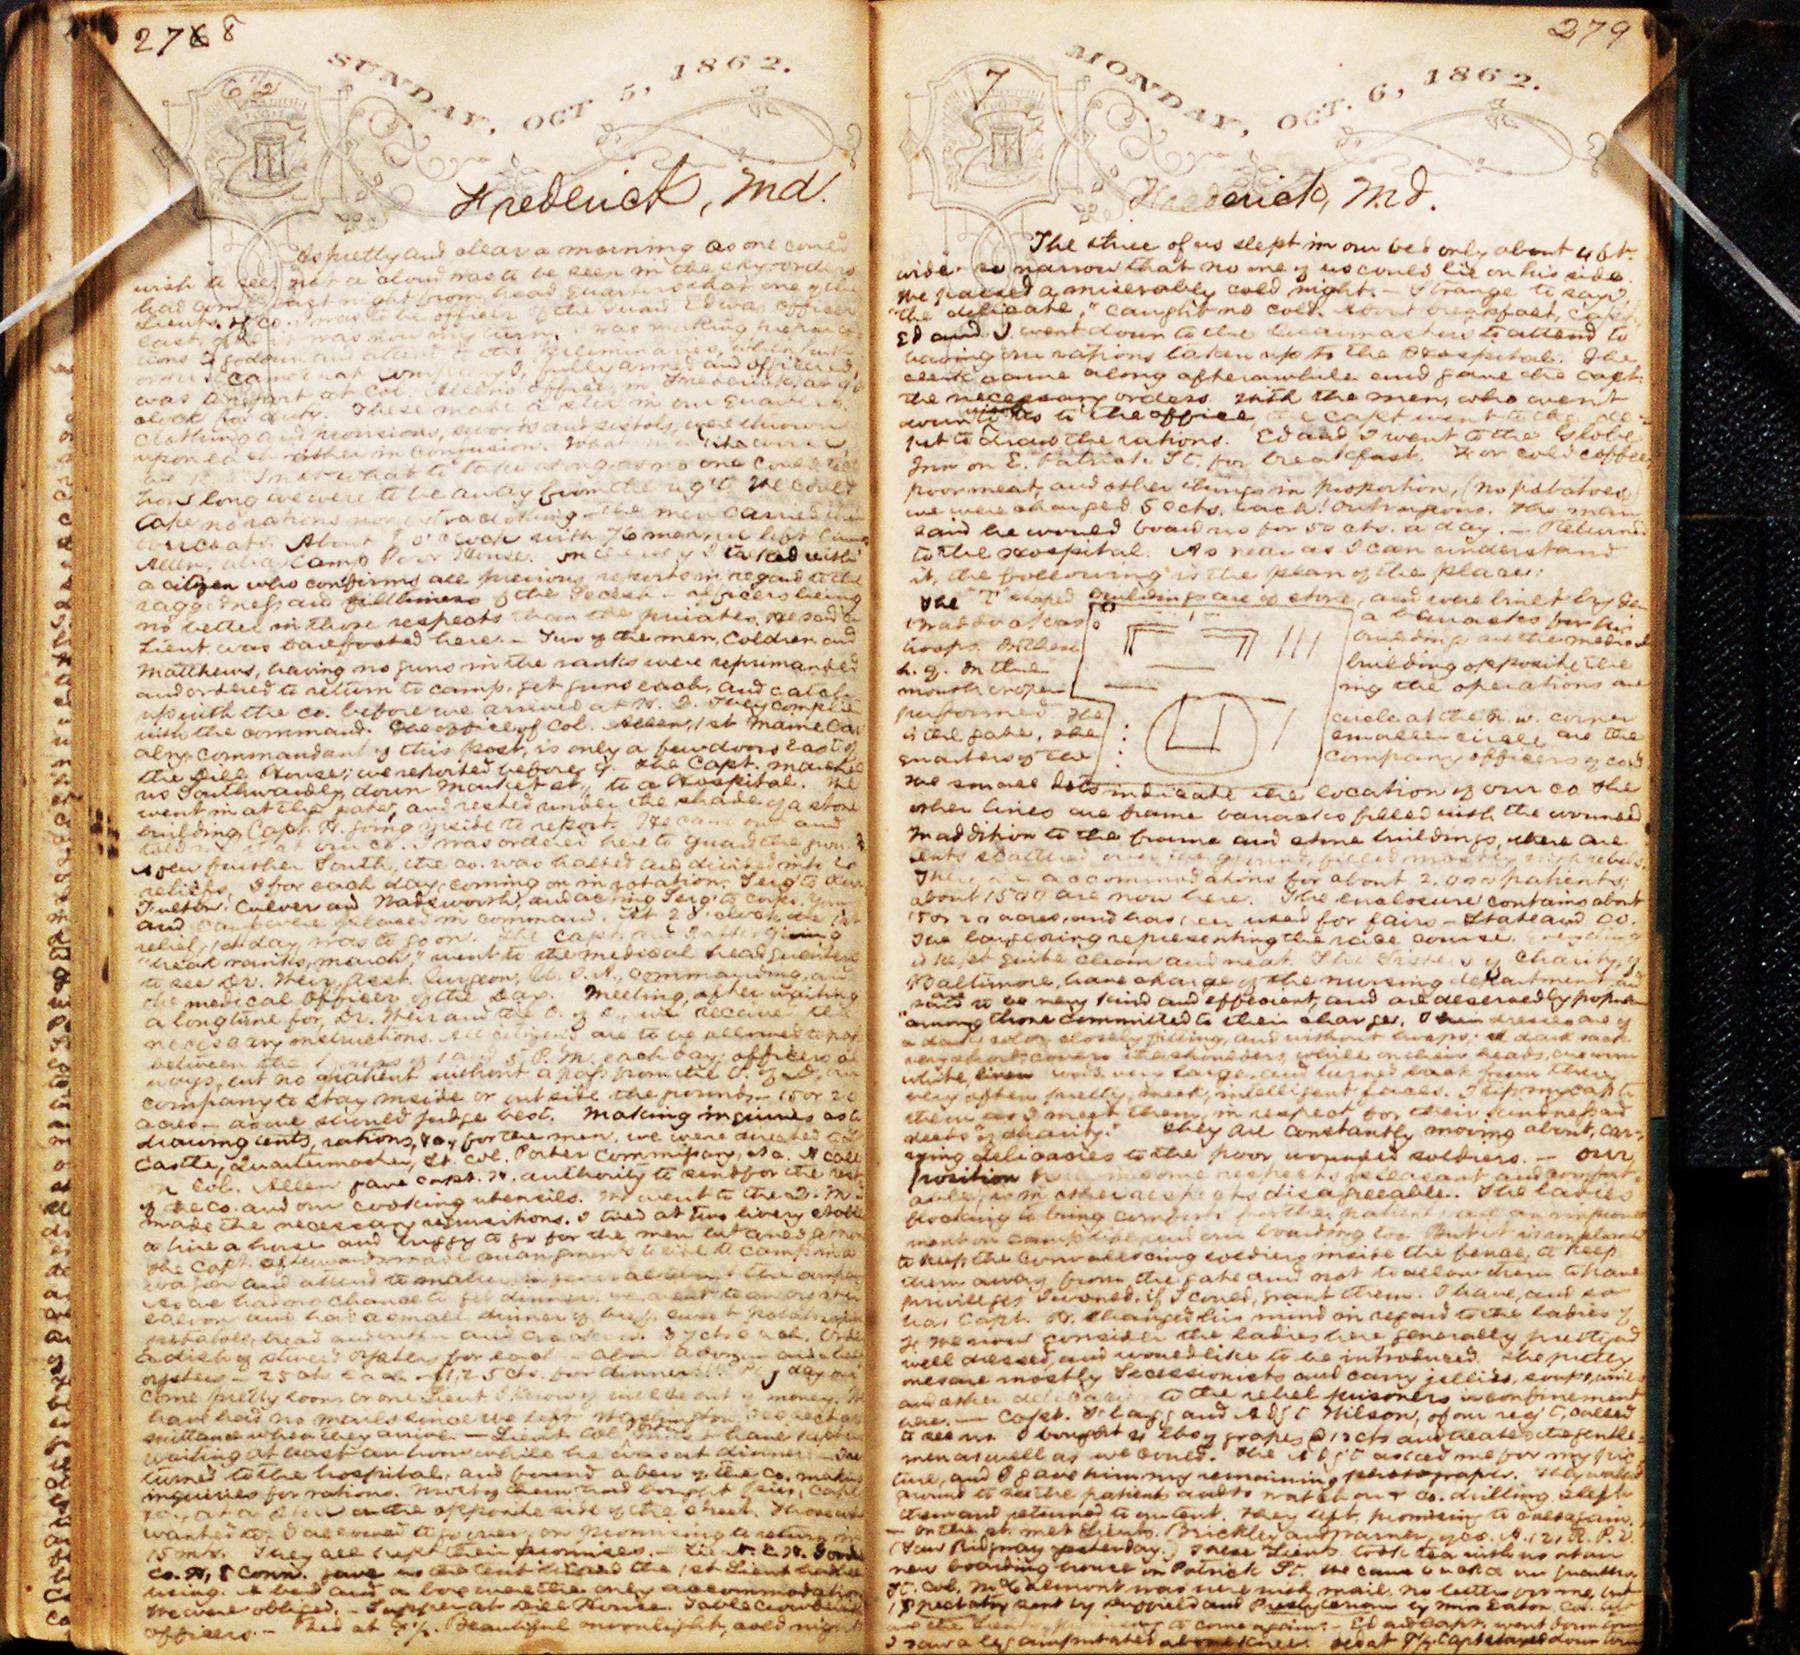 278
SUNDAY, OCT 5, 1862.
6 1/2
Frederick, Md.
As pretty and clear a morning as one could
wish to see, not a cloud was to be seen in the sky. orders
had come last night from head quarters that one of the
Lieuts. of co. I was to be officer of the Guard Ed was officer
last, it was now my turn. I was making prepara
tions to go down and attend to the preliminaries, when
order came that Company I, fully armed and officered,
was to report at Col. Allen's office, in Frederick, at 9
oclock for duty. These made a stir in our quarters.
clothing and provisions, swords and pistols, were thrown
upon each other in confusion. What
know what to take along, as no one could tell
how long we were to be away from the reg't. We could
take no rations nor extra clothing - the men carried their
overcoats. About 8 o'clock with 76 men, we left Camp
Allen, alias Camp Poor House. On the way I talked with
a citizen who confirms all previous reports in regard to the
raggedness and filthiness of the Secesh - officers being
no better in those respects than the privates. He said a
Lieut. was barefooted here. - Two of the men, Coldren and
Matthews, having no guns in the ranks were reprimanded
and ordered to return to camp, get guns each, and catch
up with the co. before we arrived at H. Q. They complied
with the command. The office of Col. Allen, 1st Maine Cav
alry, commandant of this post, is only a few doors East of
the Dill House; we reported before 9. The Capt. marched
us Southwardly down Market st., to a Hospital. We
went in at the gate, and rested under the shade of a stone
building, Capt. H. going inside to report. He came out and
told us that our co. I was ordered here to guard the
A few further South, the co. was halted and divided into
reliefs, 3 for each day, coming on in rotation. Serg'ts
Fulton, Culver and Wadsworth, and acting Serg'ts corps.
and were placed in command. At 2 o'clock the 1st
relief, 1st day was to go on. The Capt. and I after giving
"break ranks, march," went to the medical head quarters
to see Dr. Weir, Asst. Surgeon, U.S.A., commanding, and
the medical Officer of the Day. Meeting, after waiting
a long time for, Dr. Weir and the O. of D., we received the
necessary instructions. All citizens are to be allowed to pass
between the hours of 1 and 5 P.M. each day; officers al
ways, but no patient without a pass from the O. of D., our
company to stay inside or outside the grounds - 15 or 20
acres - as we should judge best. Making inquiries as to
drawing tents, rations, &c., for the men, we were directed to
Castle, Quartermaster, Lt. Col. Porter Commissary, &c. A call
on Col. Allen gave Capt. H. authority to send for the rest
of the co. and our cooking utensils. We went to the Q. M.
made the necessary requisitions. I tried at two livery stables
to hire a horse and buggy to go for the men but
The Capt. afterwards made arrangements to ride to camp in a
wagon and attend to matters
As we had no chance to get dinner, we went to an oyster
saloon and had a small dinner of beef, sweet potatoes,
potatoes, bread and butter and crackers. 37 cts each. Order
a dish of stewed oysters for each - about a dozen
oysters - 25 cts each - $1,25 cts. for dinner!!! Pay day
come pretty soon or one Lieut I know of will be out of money. We
have had no mails since we left Washington,
mittance when they arrive. - Lieut. Col
waiting at least an hour while he was at dinner. -
turned to the hospital, and found a few of the Co. making
inquiries for rations. Most of them had bought pies, cakes
&c., at a store on the opposite side of the street. Those who
wanted to, I allowed to go over, on promising to return in
15 min. They all kept their promises. - Lt. A. E. H.
Co. H, 8 Conn. gave us the tent he and the 1st Lieut had
using. A bed and a box were the only accommodations
We were obliged. - Supper at Dill House. Table crowded
officers. - Bed at 8 1/2. Beautiful moonlight, cold night
279
MONDAY, OCT. 6, 1862.
7
Frederick, Md.
The three of us slept in our bed only about 4 ft.
wide - so narrow that no one of us could lie on his side.
We passed a miserably cold night. - Strange to say,
"the delicate," caught no cold. About breakfast, Capt.
Ed and I went down to the Quartermasters to attend to
having our rations taken up to the Hospital. The
clerk came along afterawhile and gave the Capt.
the necessary orders. With the men, who went
down with us to the office, the Capt went to the de-
pot to draw the rations. Ed and I went to the Globe
Inn on E. Patrick St. for breakfast. For cold coffee,
poor meat, and other things in proportion, (no potatoes)
we were charged 50 cts. each! Outrageous. The man
said he would board us for 50 cts. a day. - Returned
to the Hospital. As near as I can understand
it, the following is the plan of the place:
The "T" shaped buildings are of stone, and were built by Gen
Braddock as a barracks for his
troops. In these buildings are the medical
h. q. In the building opposite the
mouth croper- ing the operations are
performed The circle at the n. w. corner
is the gate, the smaller circles are the
quarters of the company officers of co. I
The small dots indicate the location of our co The
other lines are frame barracks filled with the wounded
In addition to the frame and stone buildings, there are
tents scattered over the ground, filled mostly with rebels.
There are accommodations for about 2,000 patients;
about 1500 are now here. The enclosure contains about
15 or 20 acres, and has been used for fairs - State and Co.
The large ring representing the race course. Everything
is kept quite clean and neat. The Sisters of Charity, of
Baltimore, have charge of the nursing department, and
said to be very kind and efficient, and are deservedly popular
among those committed to their charge. Their dresses are of
a dark color, closely fitting, and without hoops; a dark sack
very short, covers the shoulders, while on their heads, are worn
white, linen very large, and turned back from their
very often pretty, meek, intelligent faces. I tip my cap to
them as I meet them, in respect for their kindness and
deeds "of charity." They are constantly moving about, car-
rying delicacies to the poor wounded soldiers. - Our
position here in some respects pleasant and comfort-
able, is in other respects disagreeable. The ladies
flocking to bring comforts for the patients, are an improve
ment on camp life, and our boarding too. But it is unpleasant
to keep the convalescing soldiers inside the fence, to keep
them away from the gate and not to allow them to have
privileges I would, if I could, grant them. I have, and so
has Capt. H. changed his mind in regard to the ladies of
F. We now consider the ladies here generally pretty and
well dressed, and would like to be introduced. The pretty
ones are mostly Secessionists and carry jellies, soups, wines
and other delicacies to the rebel prisoners in confinement
here. - Capt. Schlag and Adj't Wilson, of our reg't, called
to see us. I bought 4 lbs of grapes @ 12 cts and treated the gentle-
men as well as we could. The Adj't asked me for my pic-
ture, and I gave him my remaining photographs. They walked
around to see the patients and to watch our co. drilling. I left
them and returned to our tent. They left, promising to come again.
- On the st. met Lieuts. Brickley and Warner, of co. A, 12, R. P. V.
(Saw Ridgway yesterday.) These Lieuts. took tea with us at our
new boarding house on Patrick St. We came back to our quarters.
Lt. Col. McDermont was here with mail, no letter for me, but
1 Spectator sent by Duffield and Presbyterian by Mrs Eaton, Col.
promising to come again. - Ed and Capt. went down town
I saw a leg amputated above knee. Bed at 9 1/2 Capt stayed down town